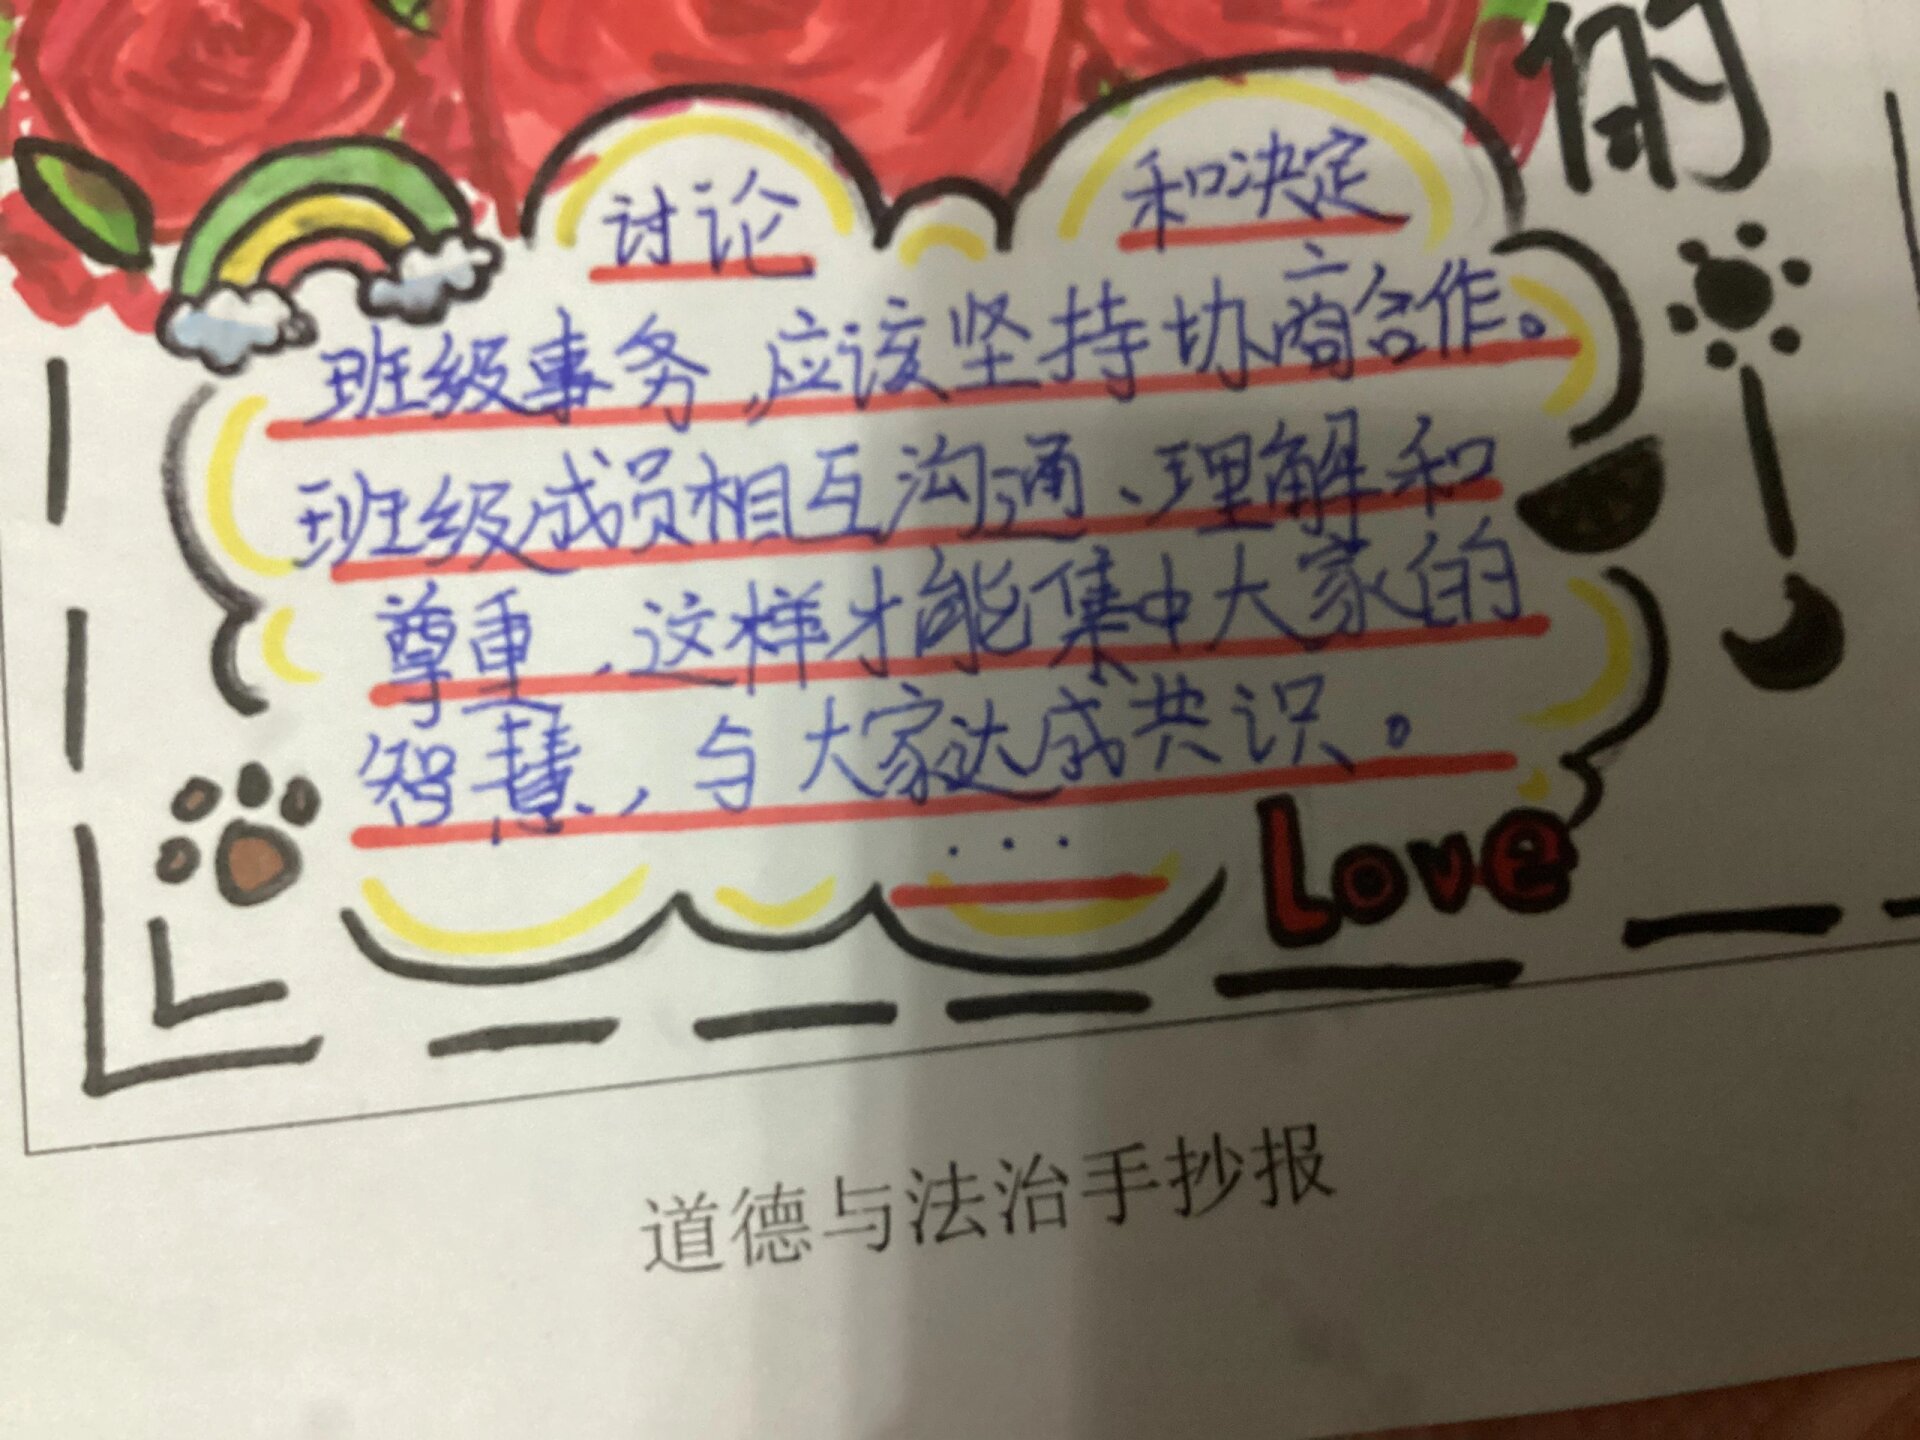 们
讨论 和决定
班级事务,应该坚持协商合作。
班级成员相互沟通、理解和
尊重,这样才能集中大家的
智慧,与大家达成共识。
...
Love
道德与法治手抄报